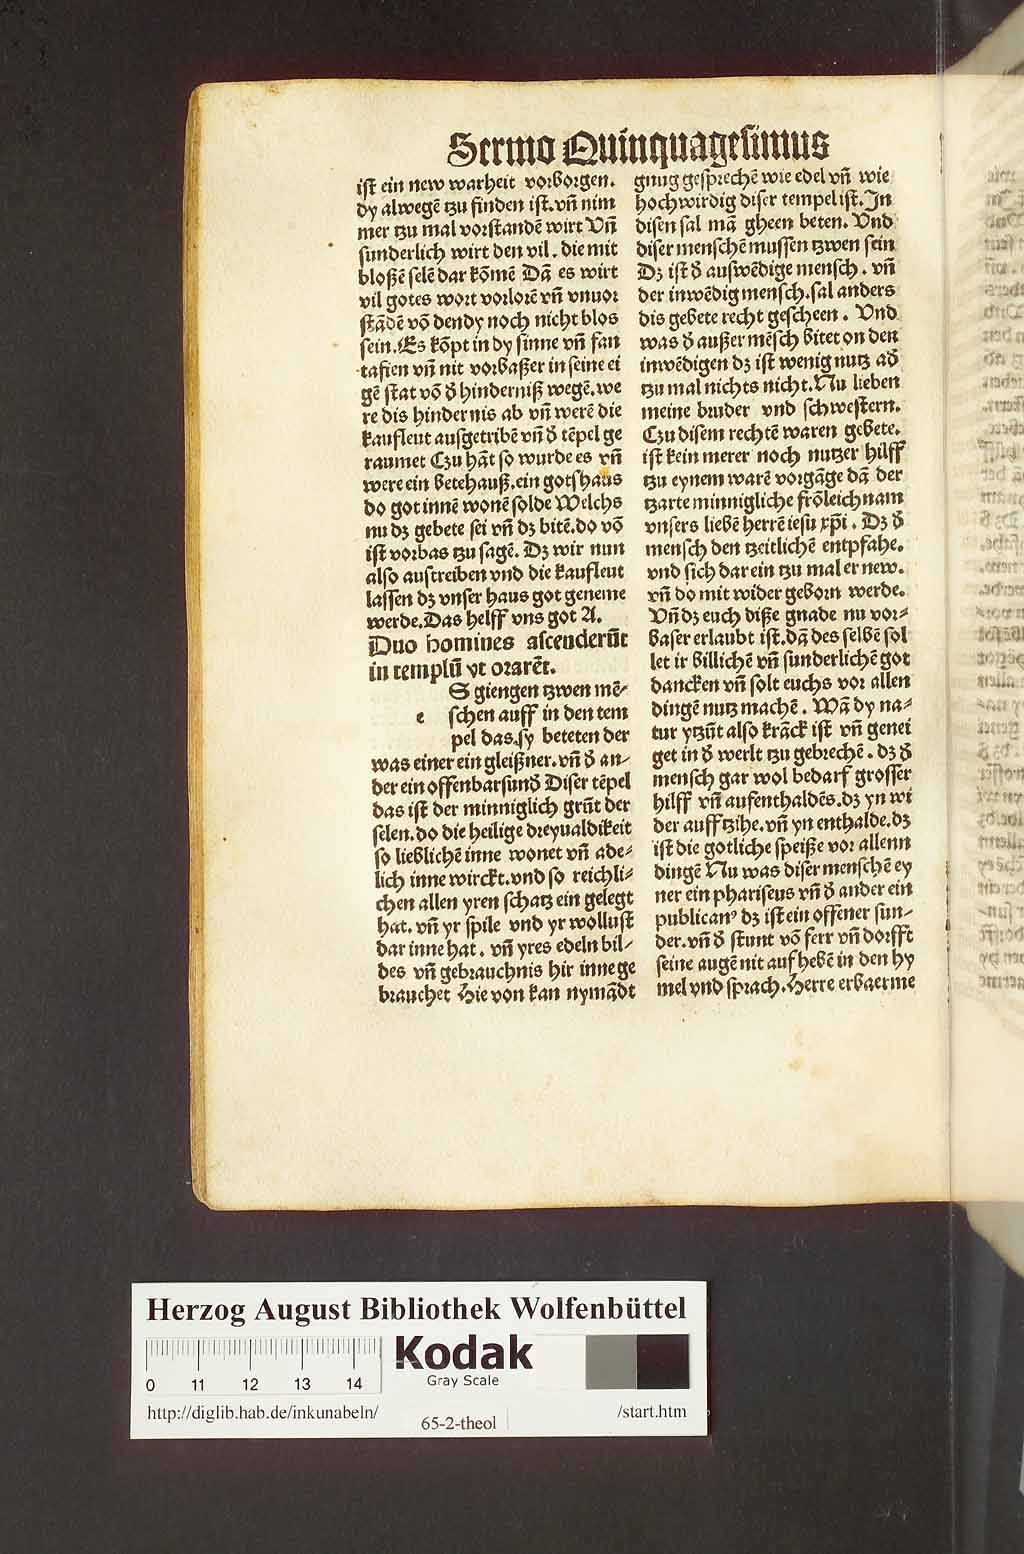 Sermo Quinquagesimus
ist ein new warheit vorborgen.
dy alwegē tzu finden ist. vn̄ nim
mer tzu mal vorstandē wirt Vn̄
sunderlich wirt den vil. die mit
bloßē selē dar kōmē Dā es wirt
vil gotes wort vorlorē vn̄ vnuor
stādē vō den dy noch nicht blos
sein. Es kōpt in dy sinne vn̄ fan
tasien vn̄ nit vorbaßer in seine ei
gē stat vō d̄ hinderniß wegē. we
re dis hindernis ab vn̄ werē die
kaufleut ausgetribē vn̄ d̄ tēpel ge
raumet Czu hāt so wurde es vn̄
were ein betehauß. ein gotshaus
do got innē wonē solde Welchs
nu dz gebete sei vn̄ dz bitē. do vō
ist vorbas tzu sagē. Dz wir nun
also austreiben vnd die kaufleut
lassen dz vnser haus got geneme
werde. Das helff vns got A.
Duo homines ascenderūt
in templū vt orarēt.
S giengen tzwen mē-
e schen auff in den tem
pel das. sy beteten der
was einer ein gleißner. vn̄ d̄ an-
der ein offenbar sund̄ Diser tēpel
das ist der minniglich grūt der
selen. do die heilige dreyualdikeit
so lieblichē inne wonet vn̄ ade-
lich inne wirckt. vnd so reichli-
chen allen yren schatz ein gelegt
hat. vn̄ yr spile vnd yr wollust
dar inne hat. vn̄ yres edeln bil-
des vn̄ gebrauchnis hir inne ge
brauchet Hie von kan nymādt
gnug gesprechē wie edel vn̄ wie
hochwirdig diser tempel ist. In
disen sal mā gheen beten. Vnd
diser menschē mussen tzwen sein
Dz ist d̄ auswēdige mensch. vn̄
der inwēdig mensch. sal anders
dis gebete recht gescheen. Vnd
was d̄ außer mēsch bitet on den
inwēdigen dz ist wenig nutz ad̄
tzu mal nichts nicht. Nu lieben
meine bruder vnd schwestern.
Czu disem rechtē waren gebete.
ist kein merer noch nutzer hilff
tzu eynem warē vorgāge dā der
tzarte minnigliche frōleichnam
vnsers liebē herrē iesu xp̄i. Dz d̄
mensch den tzeitlichē entpfahe.
vnd sich dar ein tzu mal er new.
vn̄ do mit wider geborn werde.
Vn̄ dz euch diße gnade nu vor-
baser erlaubt ist. dā des selbē sol
let ir billichē vn̄ sunderlichē got
dancken vn̄ solt euchs vor allen
dingē nutz machē. Wā dy na-
tur ytzūt also krāck ist vn̄ genei
get in d̄ werlt tzu gebrechē. dz d̄
mensch gar wol bedarf grosser
hilff vn̄ aufenthaldēs. dz yn wi
der auff tzihe. vn̄ yn enthalde. dz
ist die gotliche speiße vor allenn
dingē Nu was diser menschē ey
ner ein phariseus vn̄ d̄ ander ein
publican⁹ dz ist ein offener sun-
der. vn̄ d̄ stunt vō ferr vn̄ dorfft
seine augē nit auf hebē in den hy
mel vnd sprach. Herre erbaerme
Herzog August Bibliothek Wolfenbüttel
Kodak
Gray Scale
0 11 12 13 14
http://diglib.hab.de/inkunabeln/
65-2-theol
/start.htm